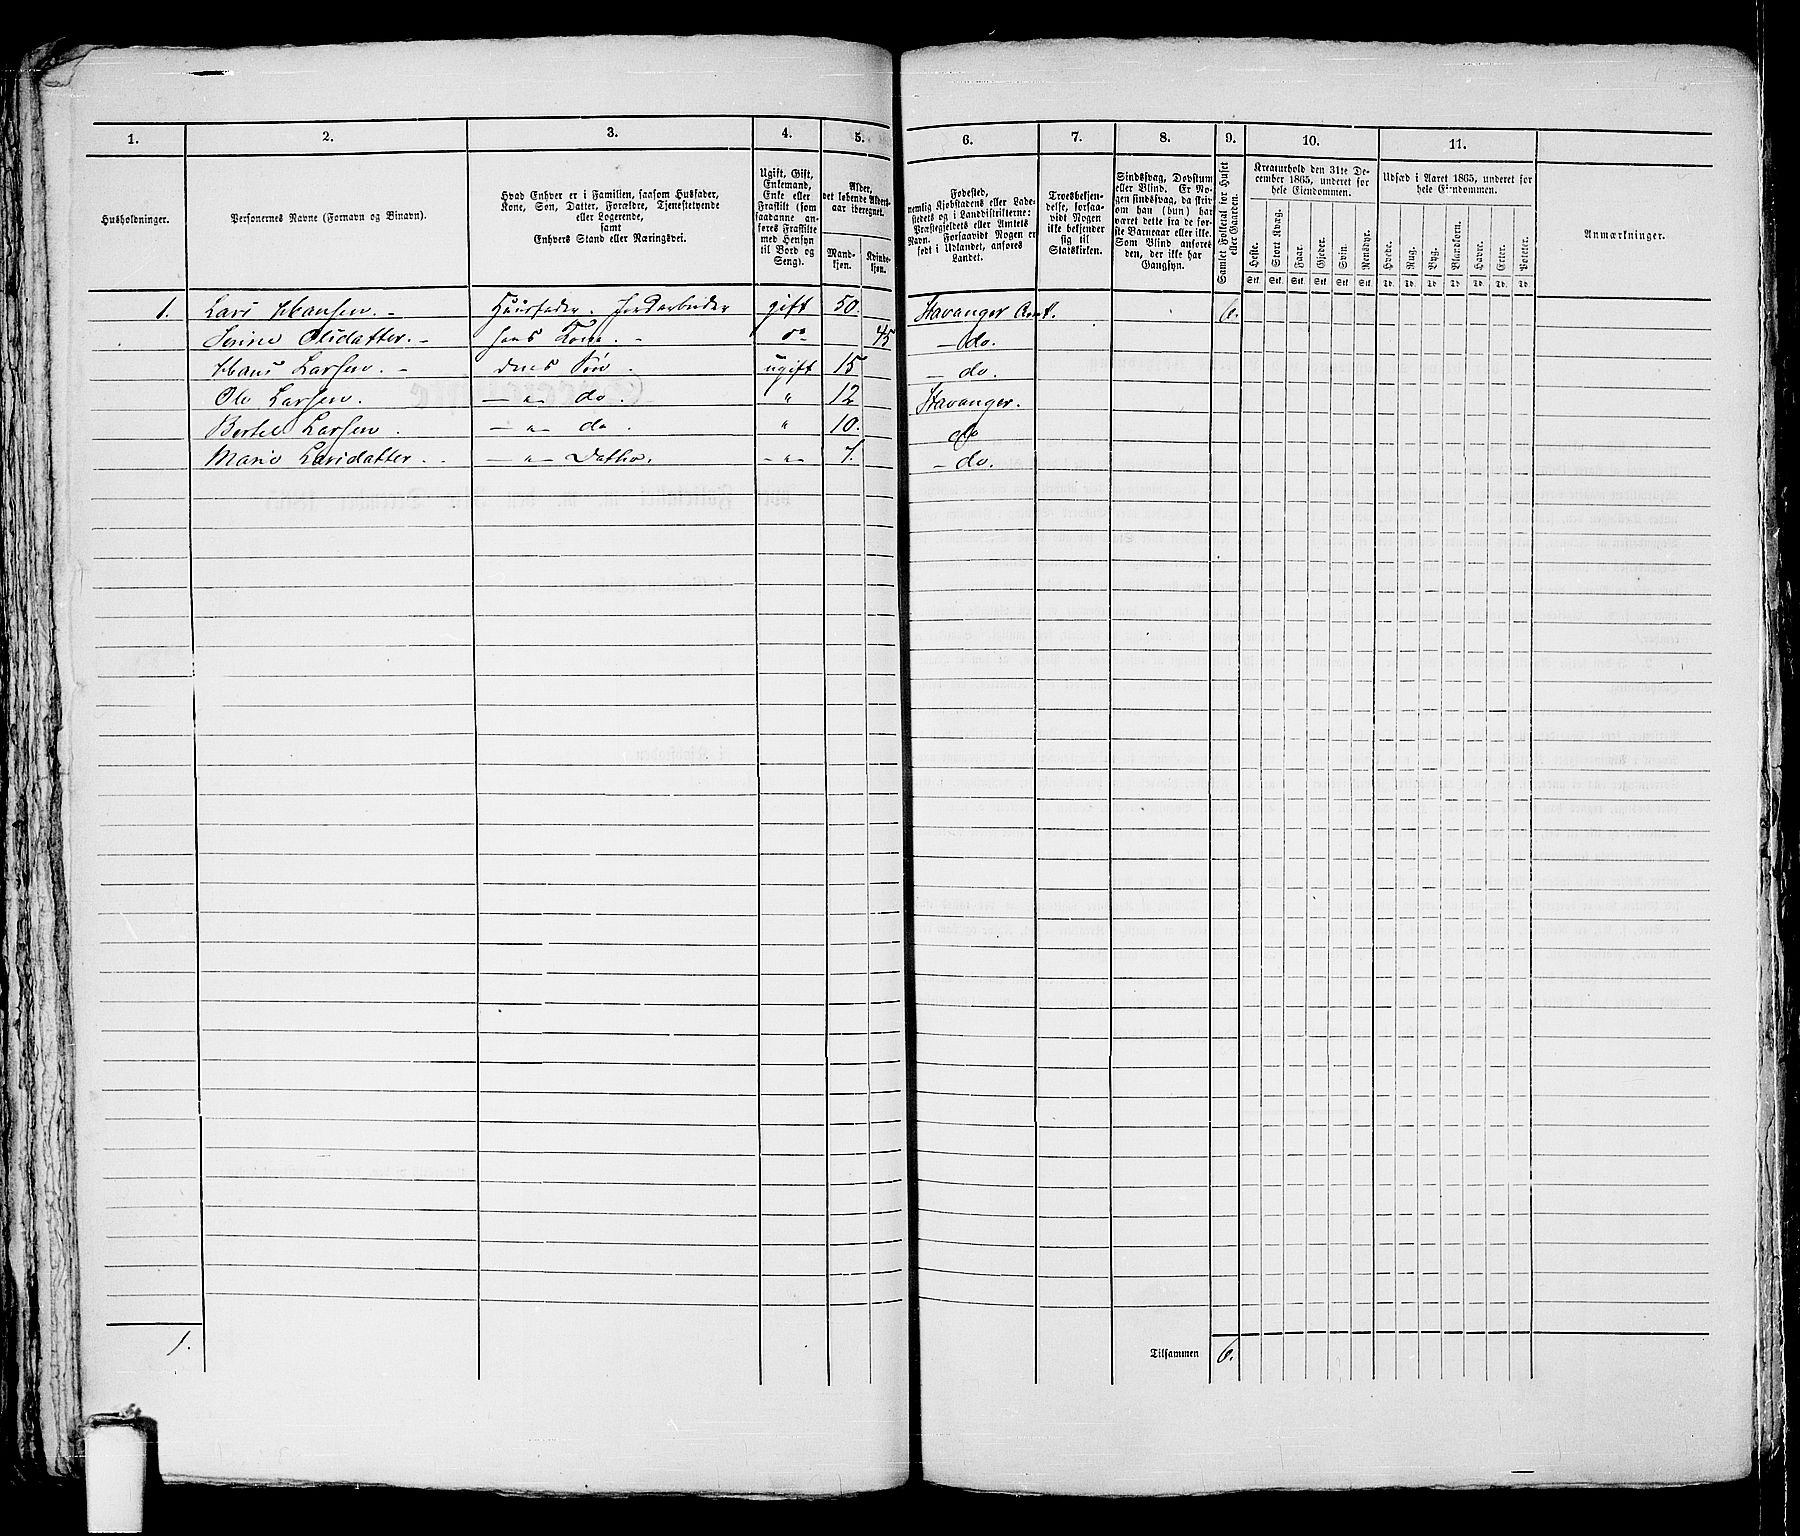 1.
2.
3.
4.
5.
6.
7.
8.
9.
10.
11.
Husholdninger.
Personernes Navne (Fornavn og Binavn).
Hvad Enhver er i Familien, saasom Husfader,
Kone, Søn, Datter, Forældre, Tjenestetyende
eller Logerende,
samt
Enhvers Stand eller Næringsvei.
Ugift, Gift,
Enkemand,
Enke eller
Fraskilt (som
saadanne an-
føres Fraskilte
med Hensyn
til Bord og
Seng).
Alder,
det løbende Alders-
aar iberegnet.
Mand-
kjøn.
Kvinde-
kjøn.
Fødested,
nemlig Kjøbstadens eller Lade-
stedets og i Landdistrikterne:
Præstegjeldets eller Amtets
Navn. Forsaavidt Nogen er
født i Udlandet, anføres
Landet.
Troesbekjen-
delse, forsaa-
vidt Nogen
ikke bekjender
sig til
Statskirken.
Sindssvag, Døvstum
eller Blind. Er No-
gen sindssvag, da skriv
om han (hun) har
været dette fra de før-
ste Barneaar eller ikke.
Som Blind anføres
den, der ikke har
Gangsyn.
Samlet Folketal for Huset
eller Gaarden.
Kreaturhold den 31te De-
cember 1865, underet for
hele Eiendommen.
Heste.
Stort Kvæg.
Faar.
Gjeder.
Svin.
Rensdyr.
Stk. Stk. Stk. Stk. Stk. Stk.
Udsæd i Aaret 1865, underet for
hele Eiendommen.
Hvede.
Rug.
Byg.
Blandkorn.
Havre.
Erter.
Poteter.
Td. Td. Td. Td. Td. Td. Td.
Anmærkninger.
1. Lars Hansen. Huusfader. Jordarbeider gift 50. Stavanger Amt. 6.
Olsdatter. hans Kone. do 45 do.
Hans Larsen. Søn. ugift 15 do.
Ole Larsen. — " — do. " 12 Stavanger.
Bertel Larsen. — " — do. " 10. do
Larsdatter. — " — — " — 7. do.
1.
Tilsammen 6.